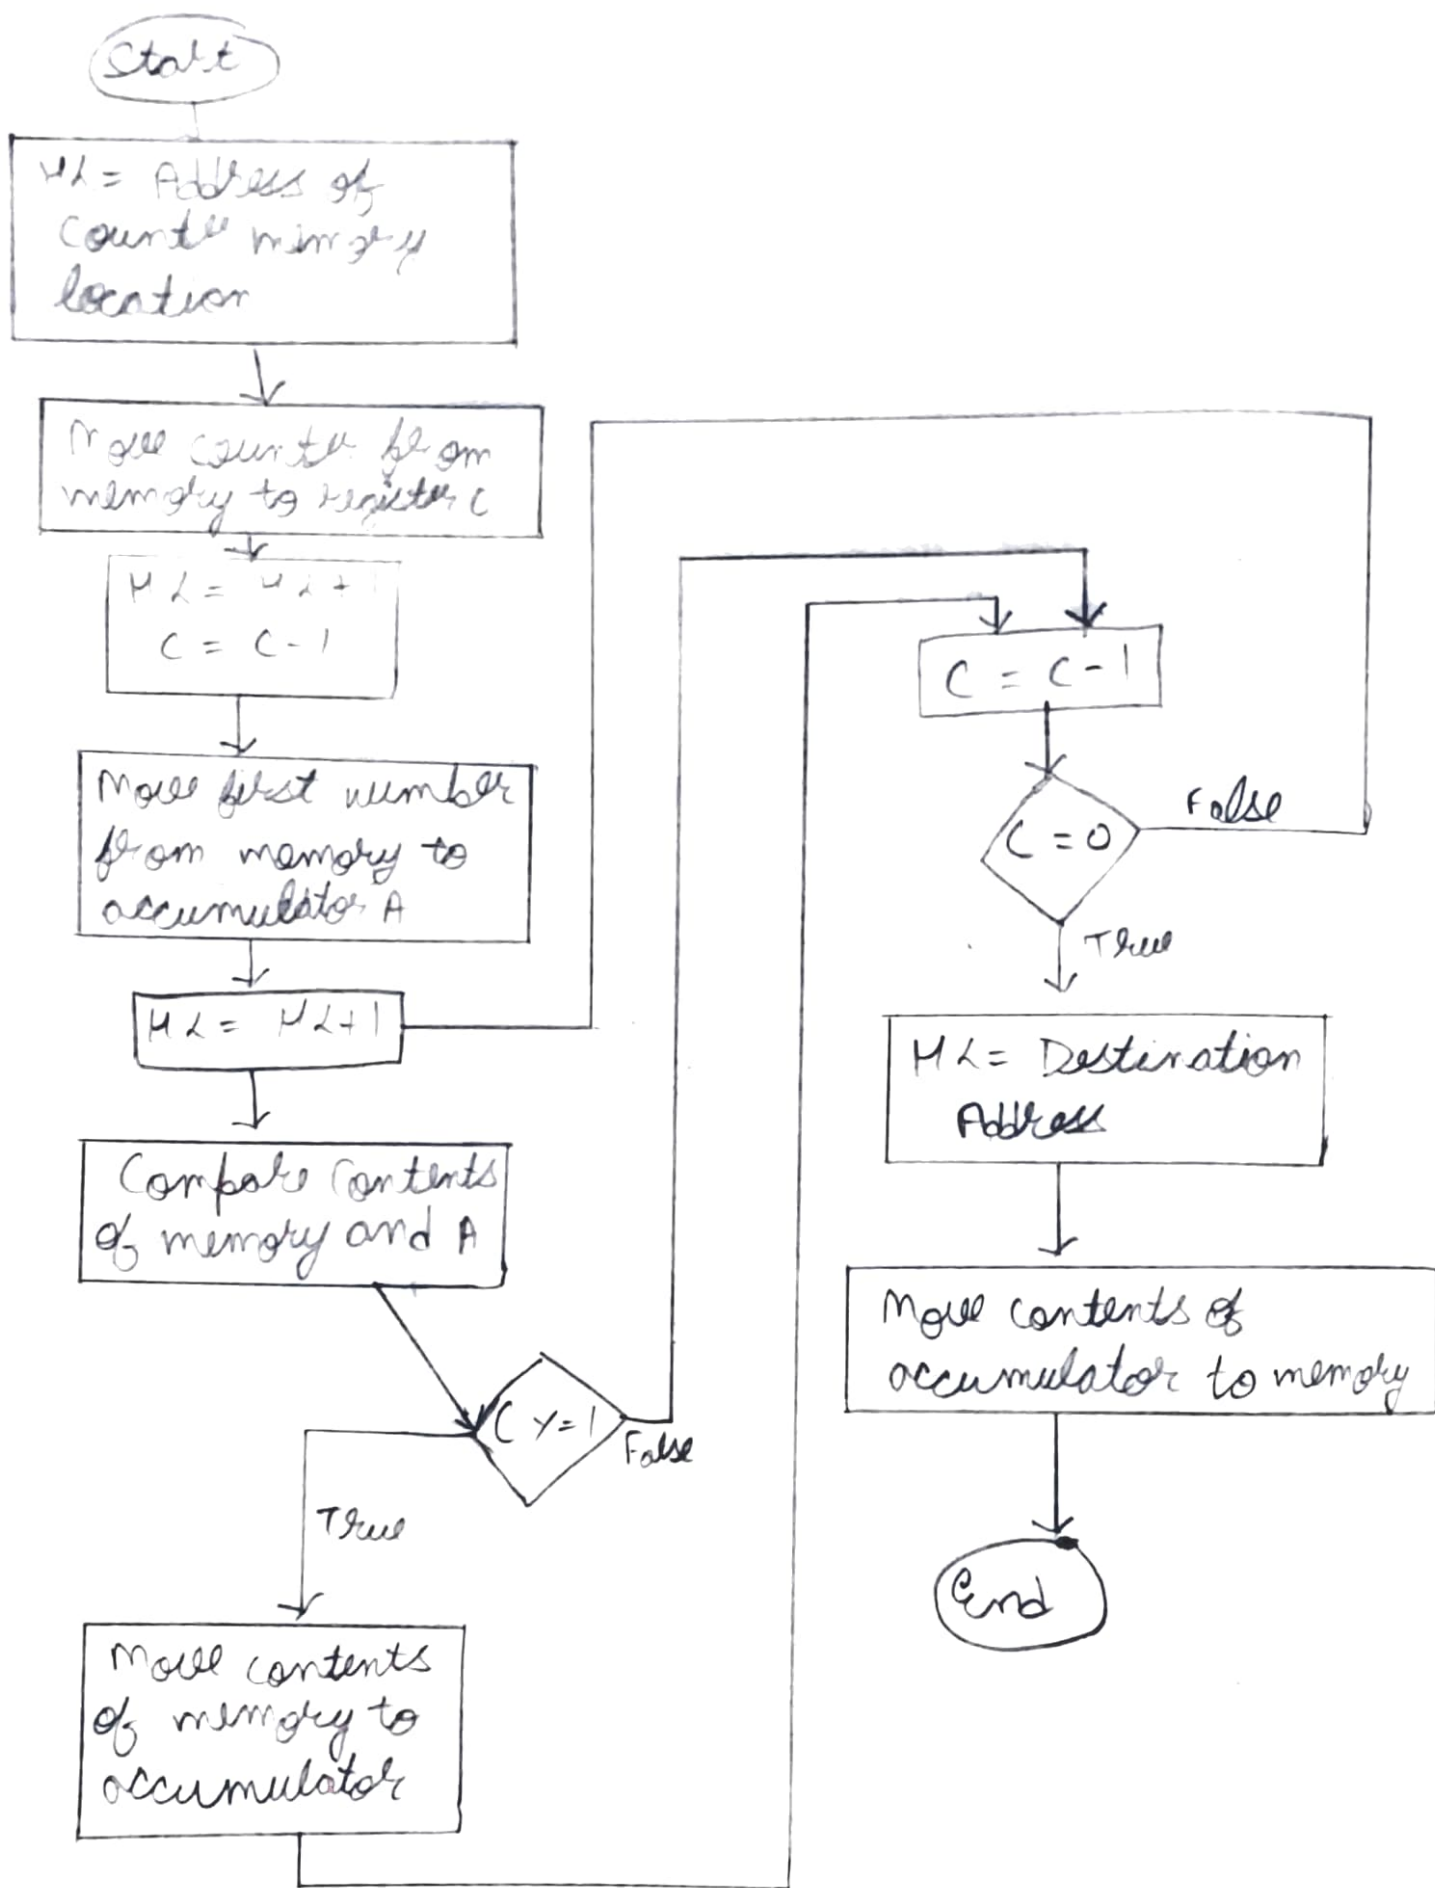 Start
HL = Address of
counter memory
location
Move counter from
memory to register C
HL = HL + 1
C = C - 1
Move first number
from memory to
accumulator A
HL = HL + 1
Compare contents
of memory and A
CY = 1
False
True
Move contents
of memory to
accumulator
C = C - 1
C = 0
False
True
HL = Destination
Address
Move contents of
accumulator to memory
End